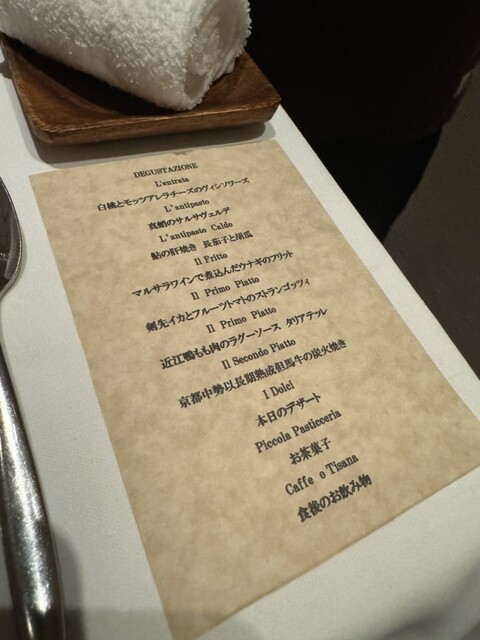 DEGUSTAZIONE
L'entrata
白桃とモッツアレラチーズのヴィシソワーズ
L'antipasto
真蛸のサルサヴェルデ
L'antipasto Caldo
鮎の肝焼き 長茄子と胡瓜
Il Fritto
マルサラワインで煮込んだウナギのフリット
Il Primo Piatto
剣先イカとフルーツトマトのストランゴッツィ
Il Primo Piatto
近江鴨もも肉のラグーソース タリアテール
Il Secondo Piatto
京都中勢以長期熟成但馬牛の炭火焼き
I Dolci
本日のデザート
Piccola Pasticceria
お茶菓子
Caffe o Tisana
食後のお飲み物